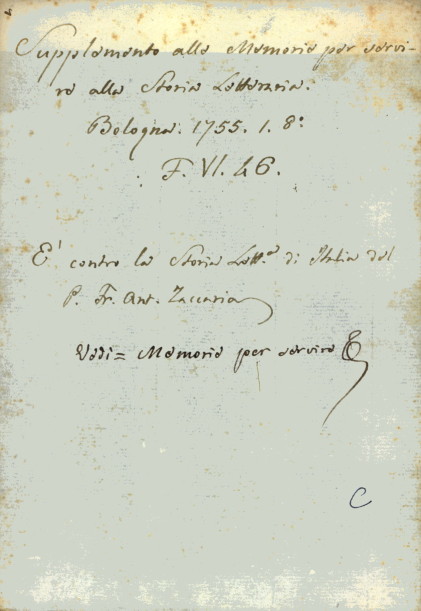 Supplemento alle Memorie per servi-
re alla Storia Letteraria.
Bologna. 1755. 1. 8º
F. VI. 46.
E' contro la Storia Lett.ª di Italia del
P. Fr. Ant. Zaccaria
Vedi = Memorie per servire &
C